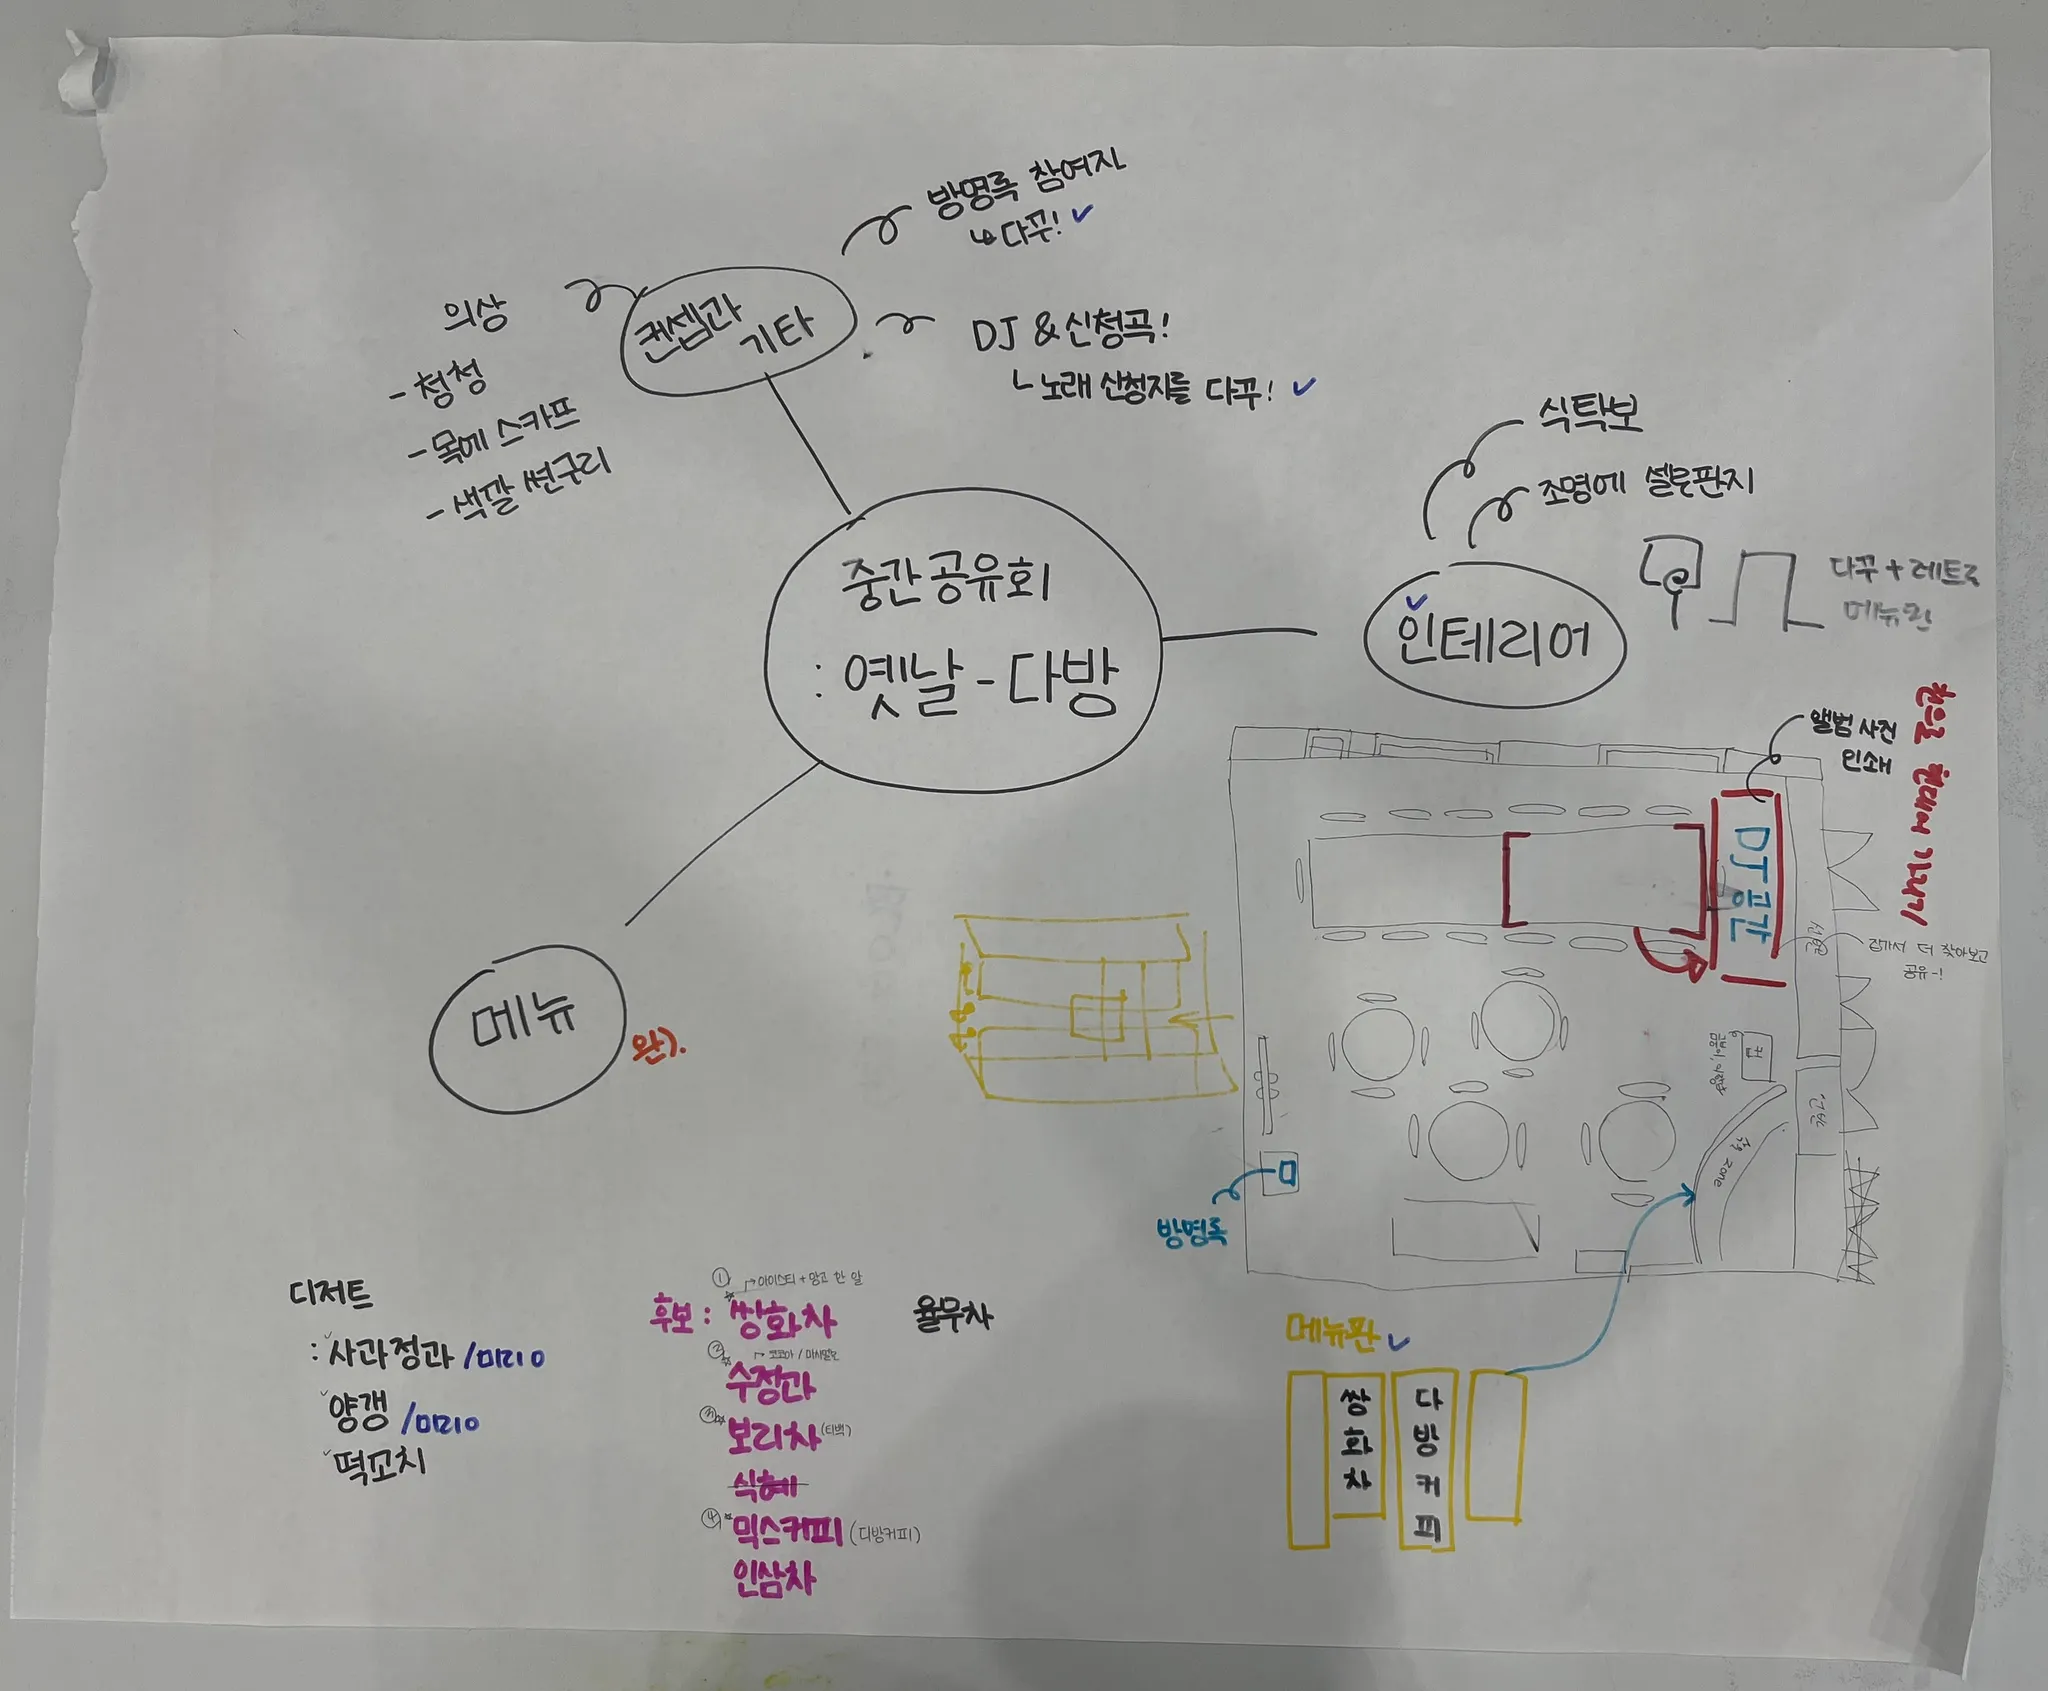 방명록 참여자
↳ 다꾸! ✓
의상
- 청청
- 목에 스카프
- 색깔 썬구리
컨셉과
기타
DJ & 신청곡!
ㄴ 노래 신청지를 다꾸! ✓
식탁보
조명에 셀로판지
중간공유회
: 옛날 - 다방
✓
인테리어
다꾸 + 레트로
메뉴판
앨범 사진
인쇄
DJ 공간
집가서 더 찾아보고
공유-!
선반
컵
zone
방명록
메뉴
완).
디저트
: 사과정과 /미리o
양갱 /미리o
떡꼬치
① 아이스티 + 망고 한 알
후보 : 쌍화차
율무차
② 코코아 /
수정과
③ 보리차 (티백)
식혜
④ 믹스커피 (다방커피)
인삼차
메뉴판 ✓
쌍화차
다방커피